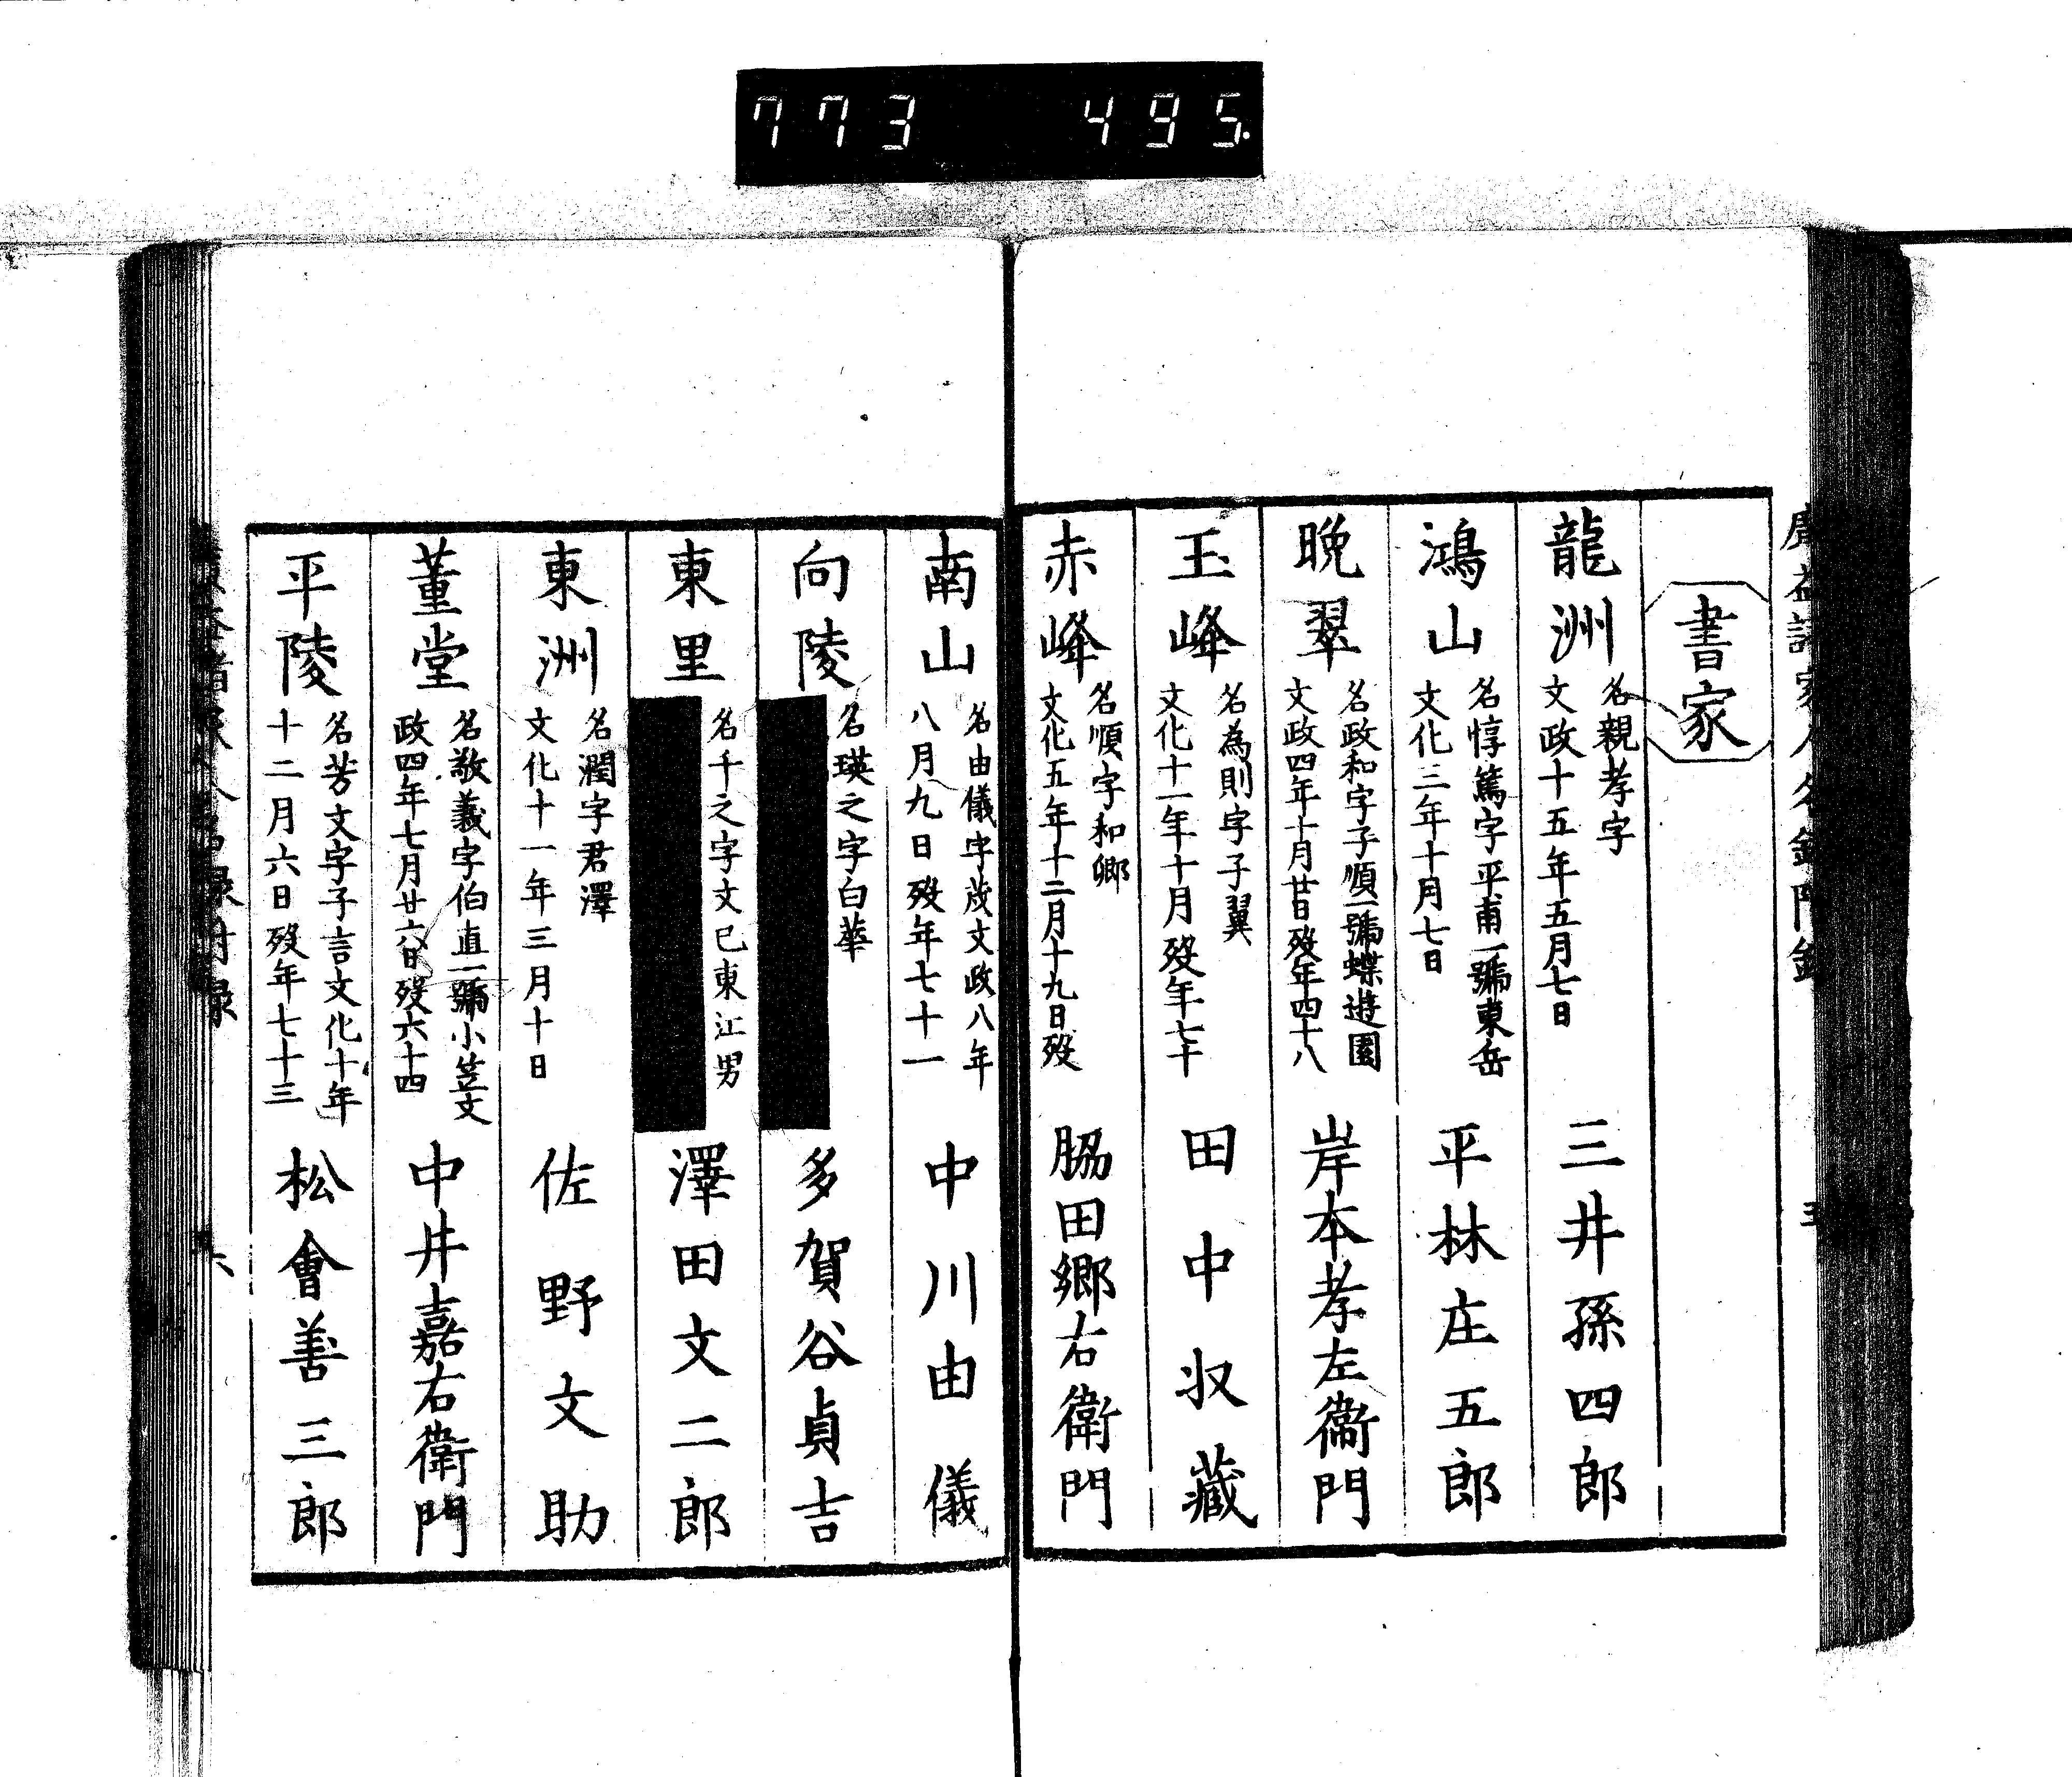 773 495.
書家
龍洲
名親孝字
文政十五年五月七日
三井孫四郎
鴻山
名惇篤字平甫一號東岳
文化三年十月七日
平林庄五郎
晩翠
名政和字子順一號蝶遊園
文政四年十月廿日歿年四十八
岸本孝左衞門
玉峰
名為則字子翼
文化十一年十月歿年七十
田中収藏
赤峰
名順字和卿
文化五年十二月十九日歿
脇田郷右衛門
南山
名由儀字茂文政八年
八月九日歿年七十一
中川由儀
向陵
名瑛之字白華
多賀谷貞吉
東里
名千之字文已東江男
澤田文二郎
東洲
名潤字君澤
文化十一年三月十日
佐野文助
董堂
名敬義字伯直一號小笠文
政四年七月廿六日歿六十四
中井嘉右衛門
平陵
名芳文字子言文化十年
十二月六日歿年七十三
松會善三郎
六